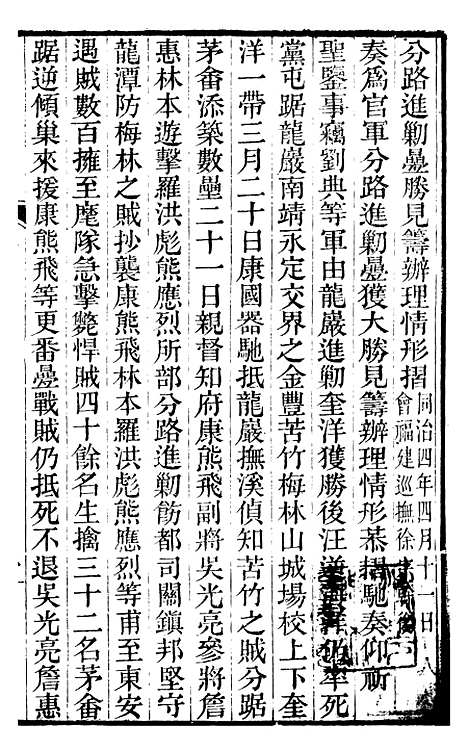 分路進勦疊勝見籌辦理情形摺同治四年四月十一日
會福建巡撫徐
奏爲官軍分路進勦疊獲大勝見籌辦理情形恭摺馳奏仰祈
聖鑒事竊劉典等軍由龍巖進勦奎洋獲勝後汪逆海洋仍率死
黨屯踞龍巖南靖永定交界之金豐苦竹梅林山城場校上下奎
洋一帶三月二十日康國器馳抵龍巖撫溪偵知苦竹之賊分踞
茅畬添築數壘二十一日親督知府康熊飛副將吳光亮參將詹
惠林本遊擊羅洪彪熊應烈所部分路進勦飭都司關鎮邦堅守
龍潭防梅林之賊抄襲康熊飛林本羅洪彪熊應烈等甫至東安
遇賊數百擁至麾隊急擊斃悍賊四十餘名生擒三十二名茅畬
踞逆傾巢來援康熊飛等更番疊戰賊仍抵死不退吳光亮詹惠